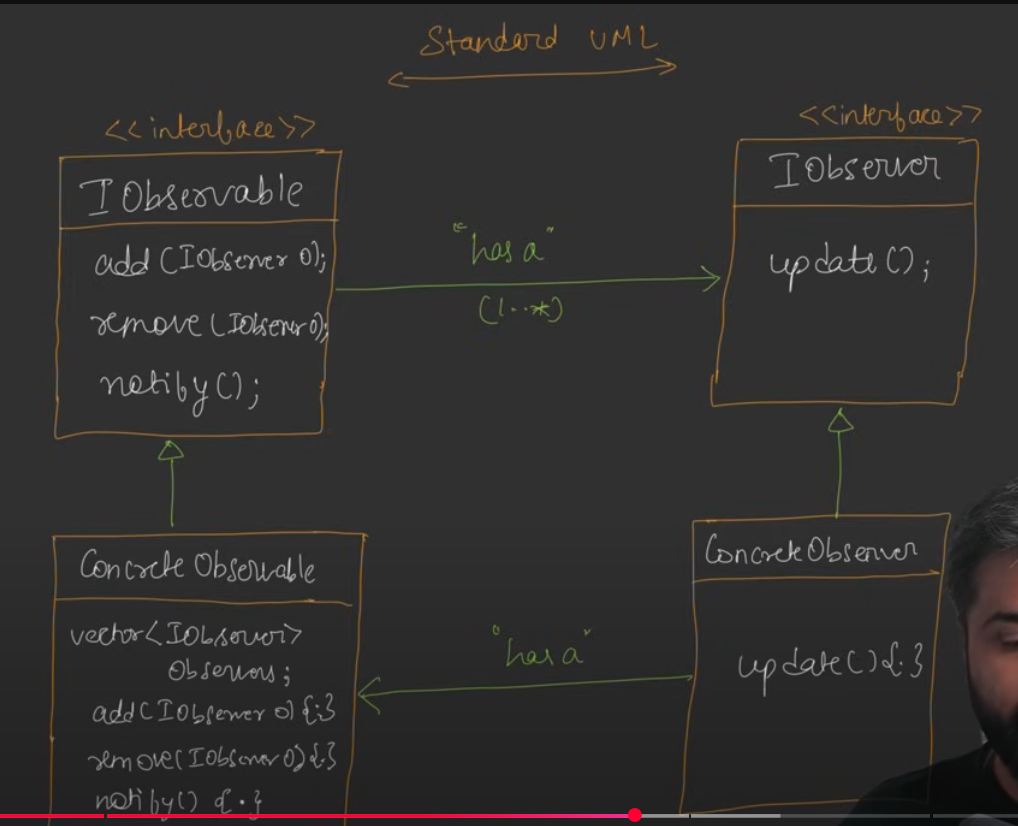 Standard UML
<<interface>>
IObservable
add(IObserver O);
remove(IObserver O);
notify();
"has a"
(1..*)
<<interface>>
IObserver
update();
Concrete Observable
vector<IObserver>
Observers;
add(IObserver O){.}
remove(IObserver O){.}
notify() {.}
"has a"
ConcreteObserver
update(){.}